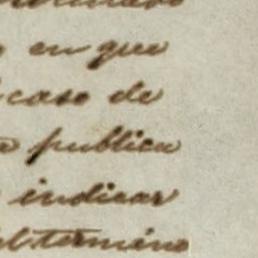 en que
caso de
publica
indicar
el termino